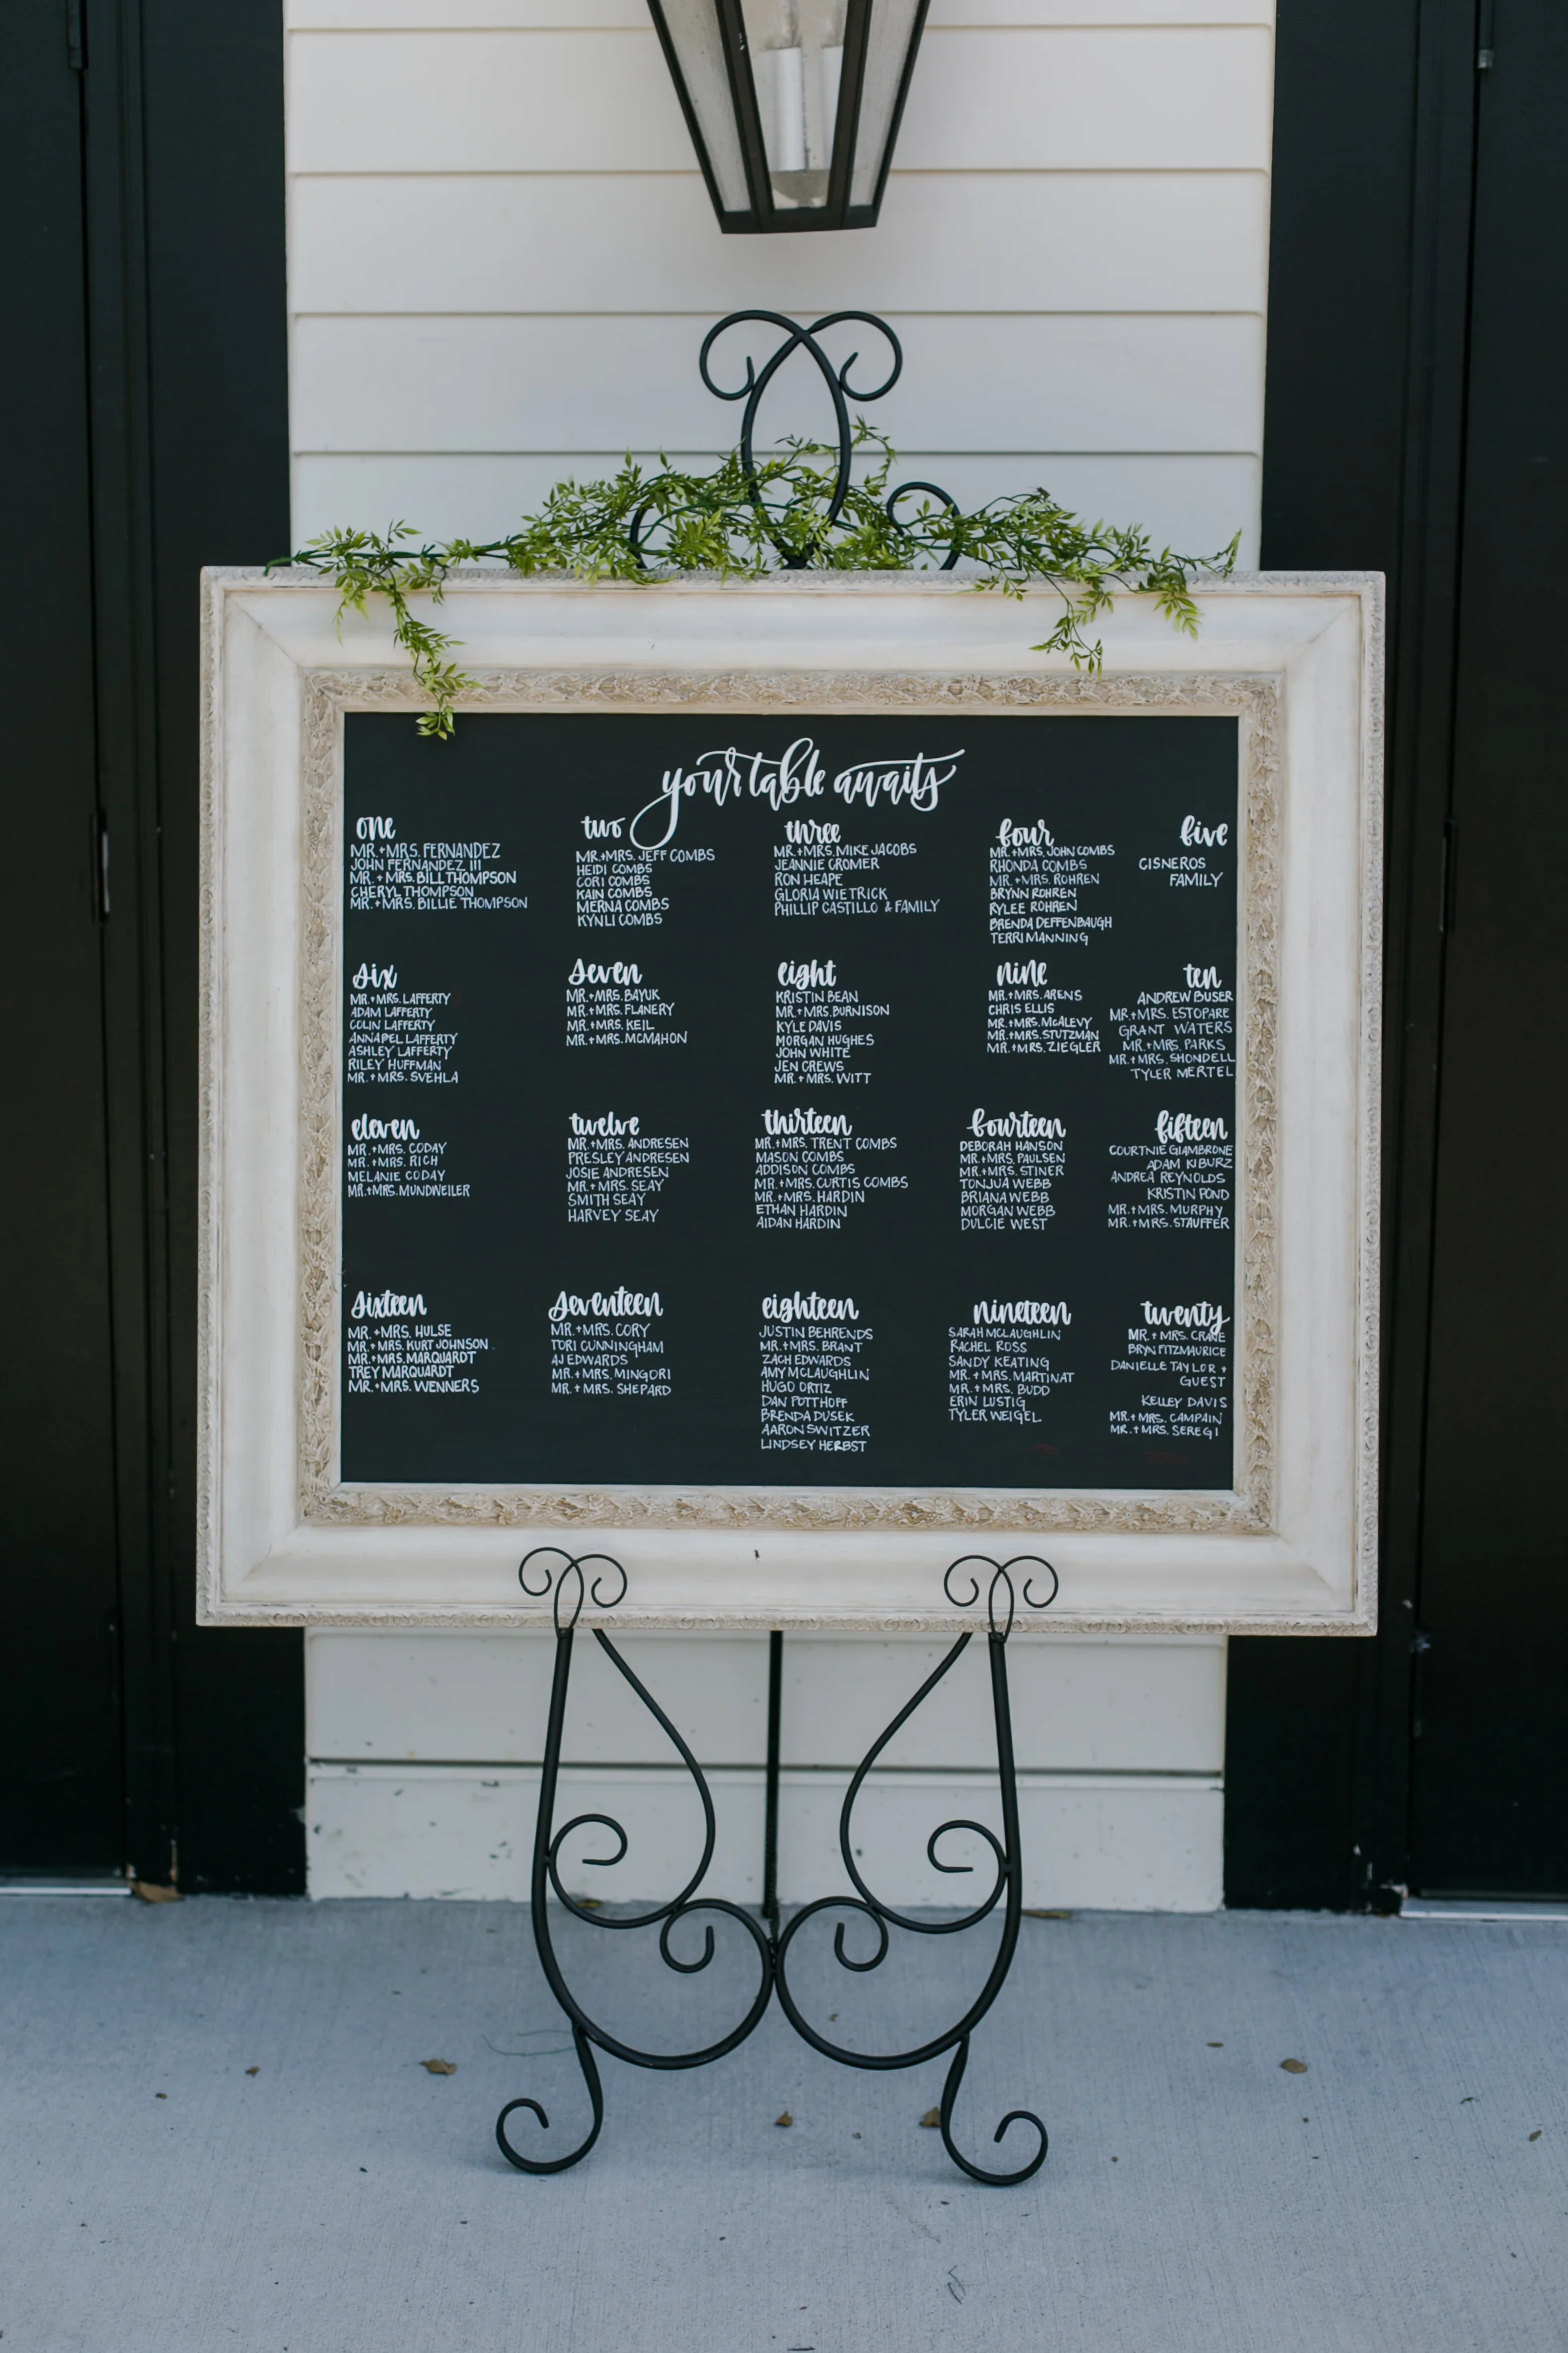 your table awaits
one
MR. + MRS. FERNANDEZ
JOHN FERNANDEZ III
MR. + MRS. BILL THOMPSON
CHERYL THOMPSON
MR. + MRS. BILLIE THOMPSON
two
MR. + MRS. JEFF COMBS
HEIDI COMBS
CORI COMBS
KAIN COMBS
MERNA COMBS
KYNLI COMBS
three
MR. + MRS. MIKE JACOBS
JEANNIE CROMER
RON HEAPE
GLORIA WIETRICK
PHILLIP CASTILLO & FAMILY
four
MR. + MRS. JOHN COMBS
RHONDA COMBS
MR. + MRS. ROHREN
BRYNN ROHREN
RYLEE ROHREN
BRENDA DEFFENBAUGH
TERRI MANNING
five
CISNEROS
FAMILY
six
MR. + MRS. LAFFERTY
ADAM LAFFERTY
COLIN LAFFERTY
ANNABEL LAFFERTY
ASHLEY LAFFERTY
RILEY HUFFMAN
MR. + MRS. SVEHLA
seven
MR. + MRS. BAYUK
MR. + MRS. FLANERY
MR. + MRS. KEIL
MR. + MRS. MCMAHON
eight
KRISTIN BEAN
MR. + MRS. BURNISON
KYLE DAVIS
MORGAN HUGHES
JOHN WHITE
JEN CREWS
MR. + MRS. WITT
nine
MR. + MRS. ARENS
CHRIS ELLIS
MR. + MRS. MCALEVY
MR. + MRS. STUTZMAN
MR. + MRS. ZIEGLER
ten
ANDREW BUSER
MR. + MRS. ESTOPARE
GRANT WATERS
MR. + MRS. PARKS
MR. + MRS. SHONDELL
TYLER MERTEL
eleven
MR. + MRS. CODAY
MR. + MRS. RICH
MELANIE CODAY
MR. + MRS. MUNDWEILER
twelve
MR. + MRS. ANDRESEN
PRESLEY ANDRESEN
JOSIE ANDRESEN
MR. + MRS. SEAY
SMITH SEAY
HARVEY SEAY
thirteen
MR. + MRS. TRENT COMBS
MASON COMBS
ADDISON COMBS
MR. + MRS. CURTIS COMBS
MR. + MRS. HARDIN
ETHAN HARDIN
AIDAN HARDIN
fourteen
DEBORAH HANSON
MR. + MRS. PAULSEN
MR. + MRS. STINER
TONJUA WEBB
BRIANA WEBB
MORGAN WEBB
DULCIE WEST
fifteen
COURTNIE GIAMBRONE
ADAM KIBURZ
ANDREA REYNOLDS
KRISTIN POND
MR. + MRS. MURPHY
MR. + MRS. STAUFFER
sixteen
MR. + MRS. HULSE
MR. + MRS. KURT JOHNSON
MR. + MRS. MARQUARDT
TREY MARQUARDT
MR. + MRS. WENNERS
seventeen
MR. + MRS. CORY
TORI CUNNINGHAM
AJ EDWARDS
MR. + MRS. MINGORI
MR. + MRS. SHEPARD
eighteen
JUSTIN BEHRENDS
MR. + MRS. BRANT
ZACH EDWARDS
AMY MCLAUGHLIN
HUGO ORTIZ
DAN POTTHOFF
BRENDA DUSEK
AARON SWITZER
LINDSEY HERBST
nineteen
SARAH MCLAUGHLIN
RACHEL ROSS
SANDY KEATING
MR. + MRS. MARTINAT
MR. + MRS. BUDD
ERIN LUSTIG
TYLER WEIGEL
twenty
MR. + MRS. CRANE
BRYN FITZMAURICE
DANIELLE TAYLOR +
GUEST
KELLEY DAVIS
MR. + MRS. CAMPAIN
MR. + MRS. SEREGI